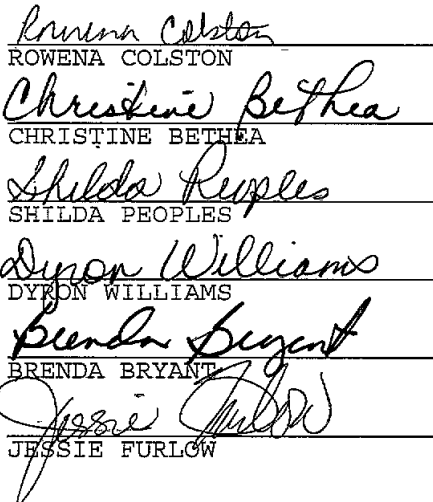 Rowena Colston
ROWENA COLSTON
Christine Bethea
CHRISTINE BETHEA
Shilda Peoples
SHILDA PEOPLES
Dyron Williams
DYRON WILLIAMS
Brenda Bryant
BRENDA BRYANT
Jessie Furlow
JESSIE FURLOW